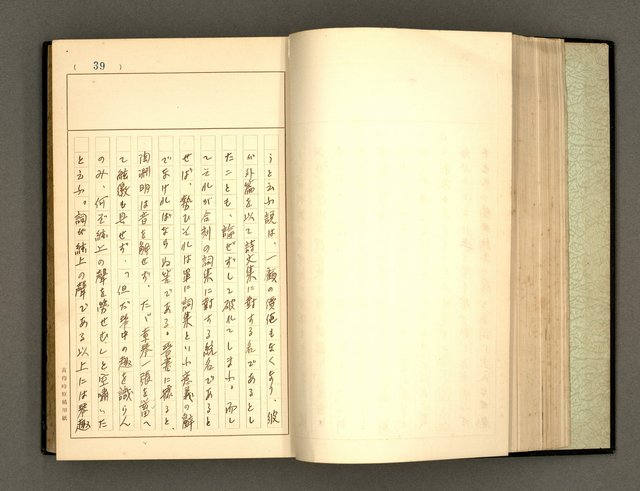 ( 39 )
うと云ふ説は、一顧の價値もなくなり、彼
が外篇を以て詩文集に對する名であるとし
たことも、論ぜずして破れてしまふ。而し
てそれが合刻の詞集に對する統名であると
せば、勢ひそれは單に詞集といふ意義の辭
でなければならぬ筈である。晉書に據ると、
陶淵明は音を解せず、たゞ素琴一張を蓄へ
て絃徽も具せず、「但だ琴中の趣を識らん
のみ、何ぞ絃上の聲を勞せむ」と空嘯いた
と云ふ。詞が絃上の聲である以上には琴趣
黃得時原稿用紙